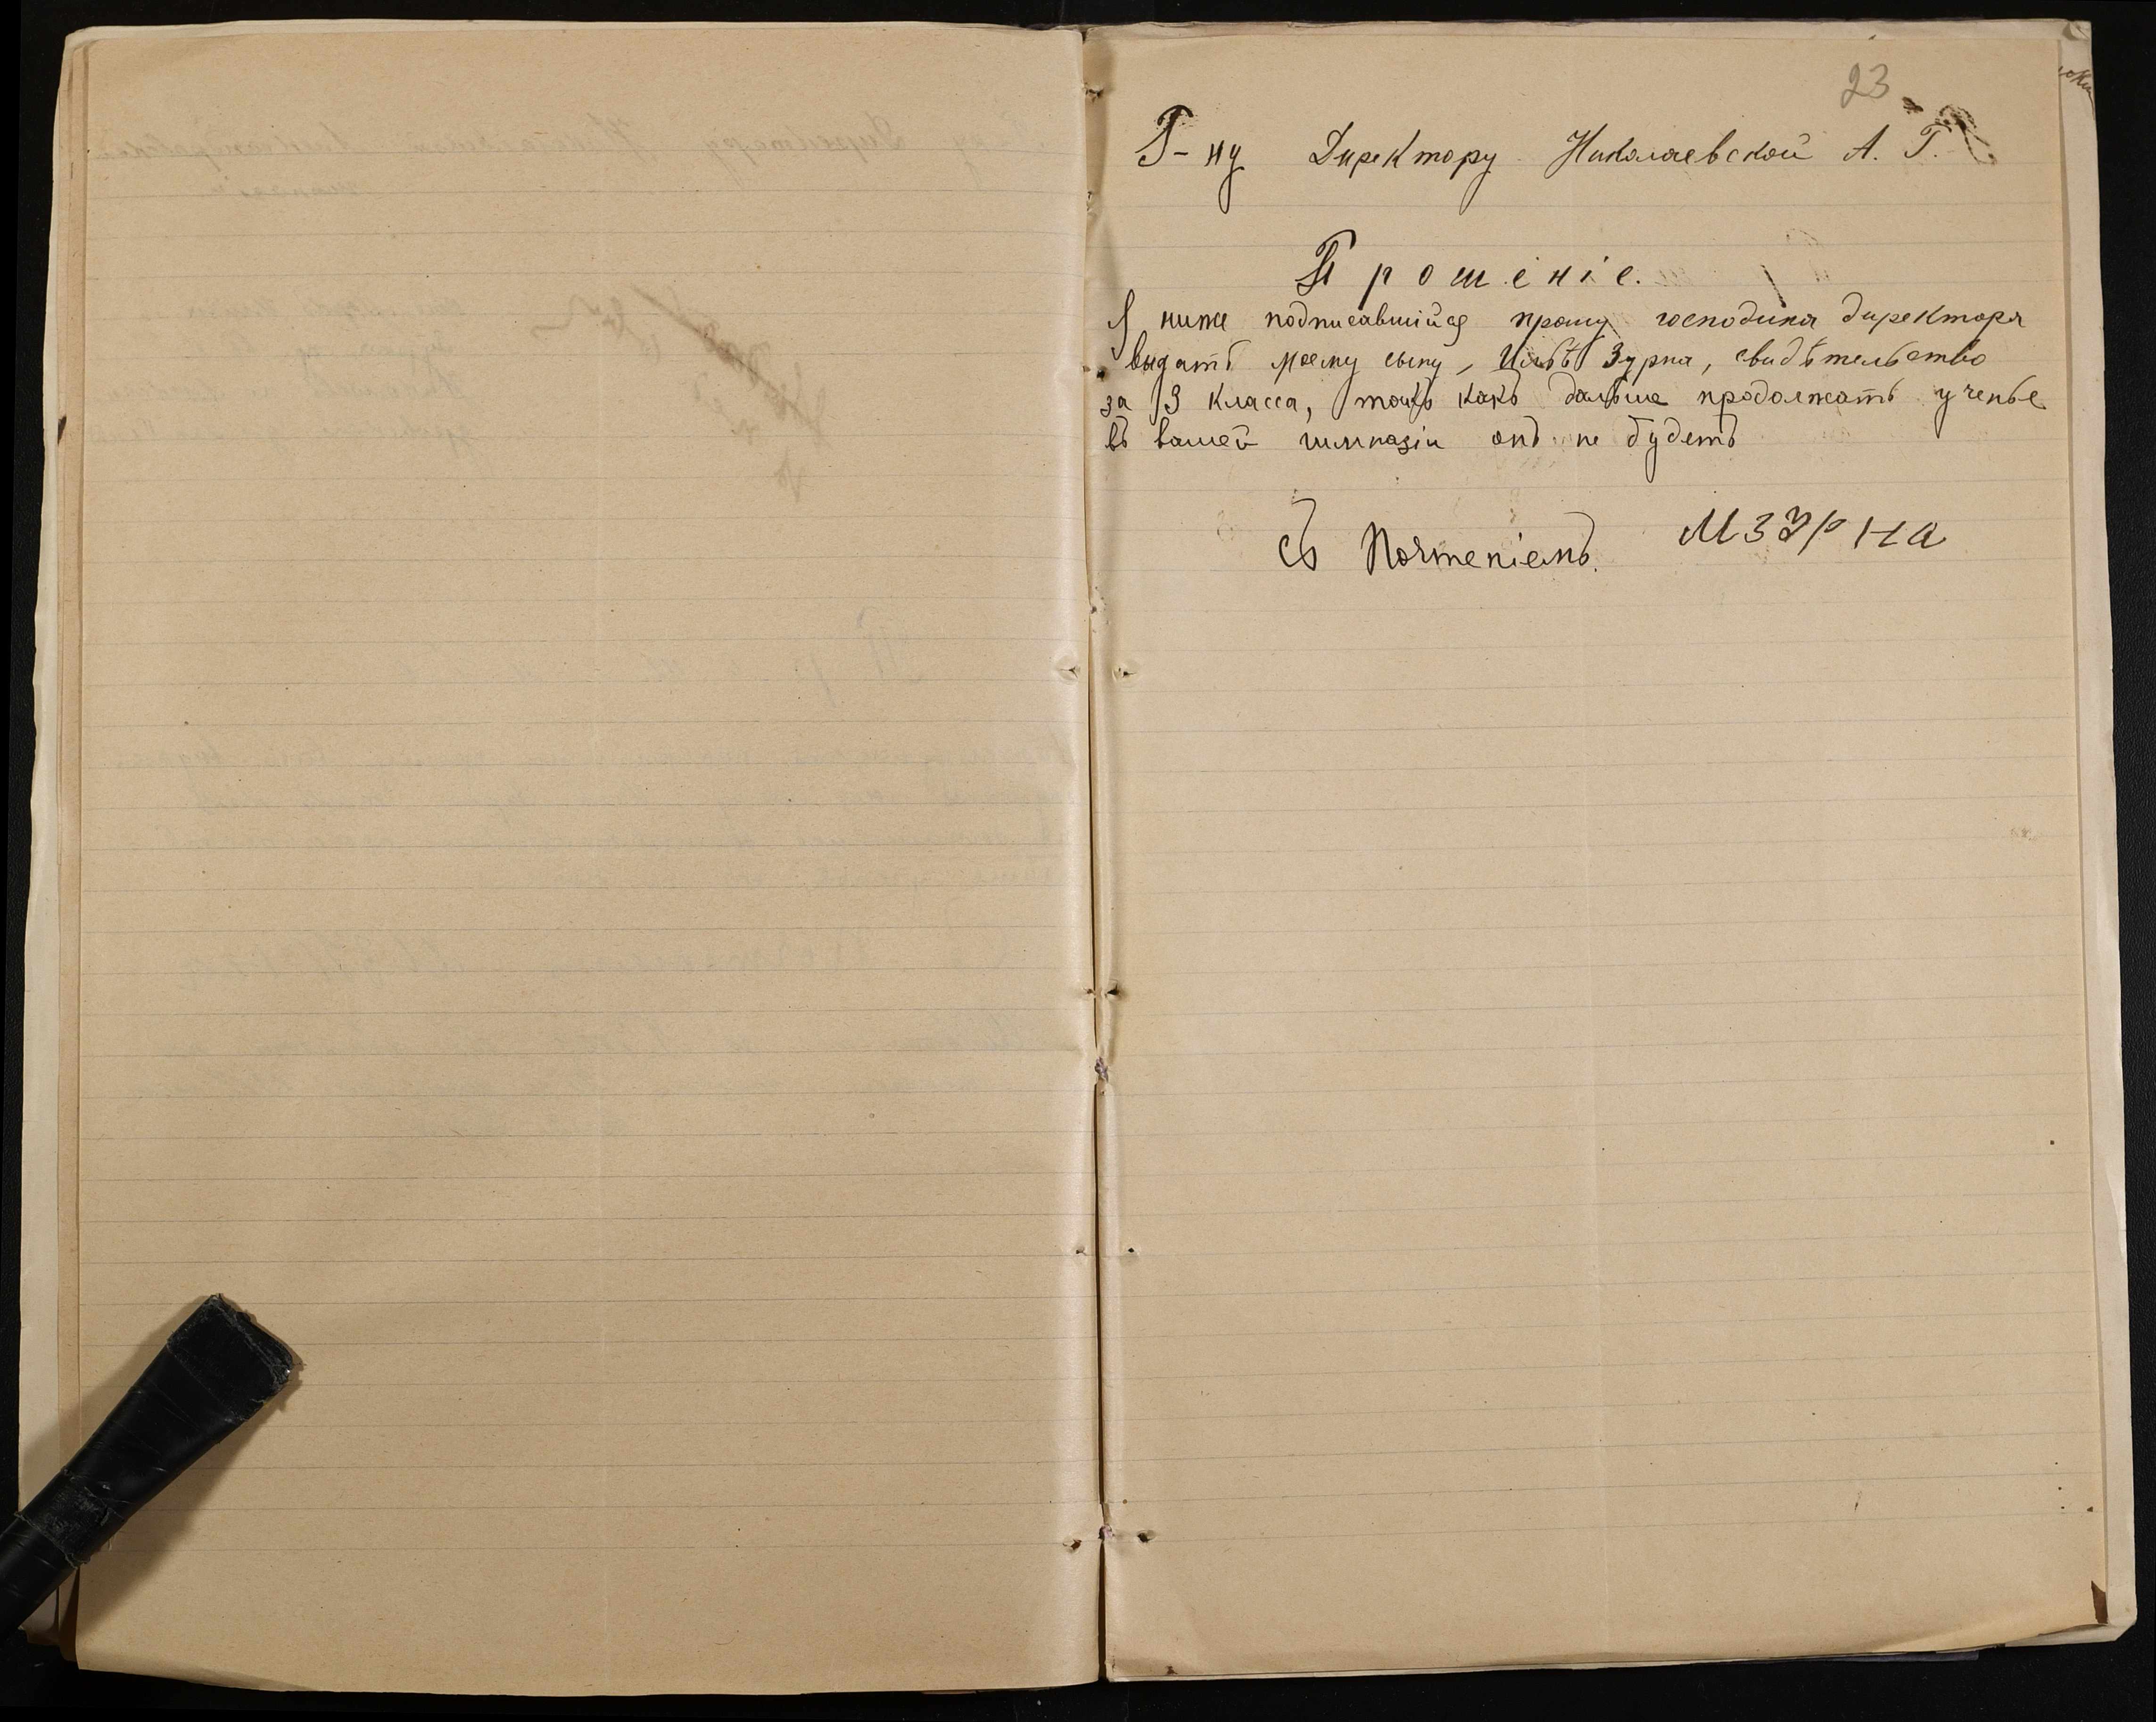 23
Г-ну Директору Николаевской А. Г.
Прошеніе.
Я ниже подписавшійся прошу господина директора
выдать моему сыну, Ильѣ Зурна, свидѣтельство
за 3 класса, такъ какъ дальше продолжать ученье
въ вашей гимназіи онъ не будетъ
съ Почтеніемъ. М Зурна